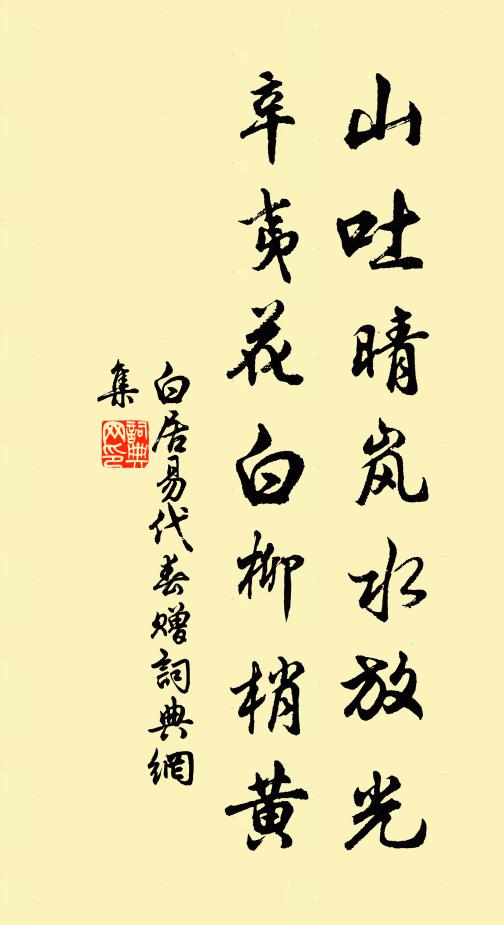 山吐晴岚水放光
辛夷花白柳梢黄
白居易代春赠詞典網
集
詞典网印